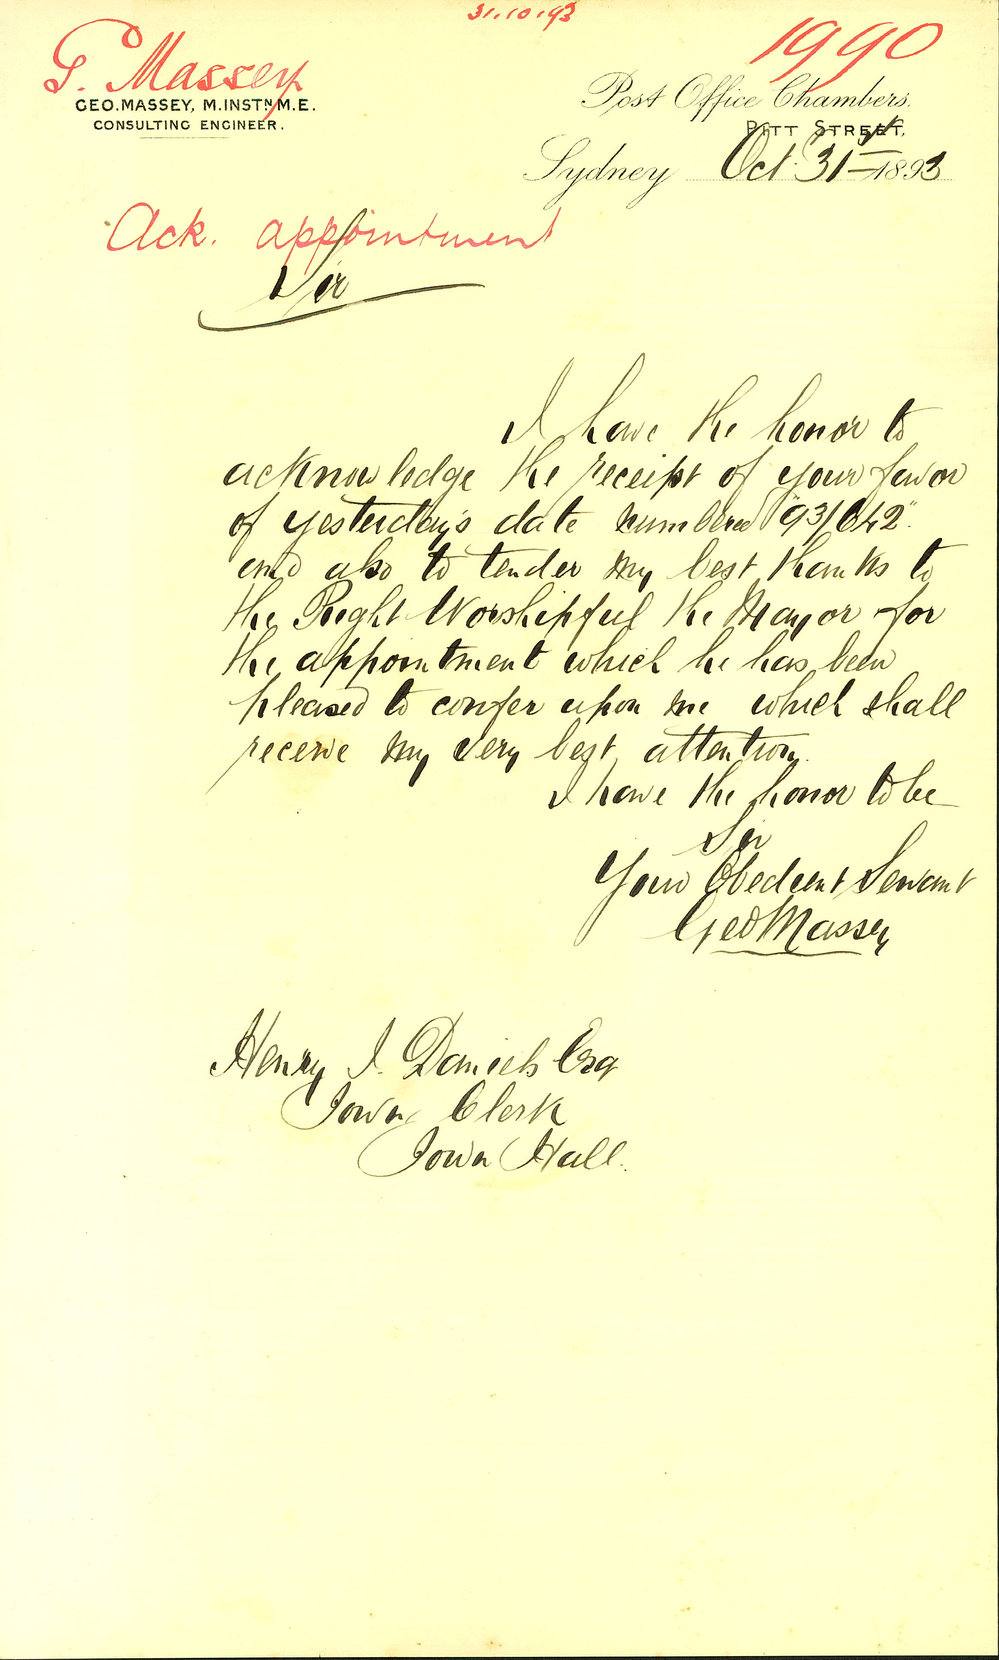 31.10.93
1990
G. Massey
GEO. MASSEY, M. INSTN M.E.
CONSULTING ENGINEER.
Post Office Chambers,
PITT STREET,
Sydney Oct 31st 1893
Ack. appointment
Sir
I have the honor to
acknowledge the receipt of your favor
of yesterday's date numbered "93/642"
and also to tender my best thanks to
the Right Worshipful the Mayor for
the appointment which he has been
pleased to confer upon me which shall
receive my very best attention.
I have the honor to be
Sir
Your Obedient Servant
Geo Massey
Henry J. Daniels Esq
Town Clerk
Town Hall.